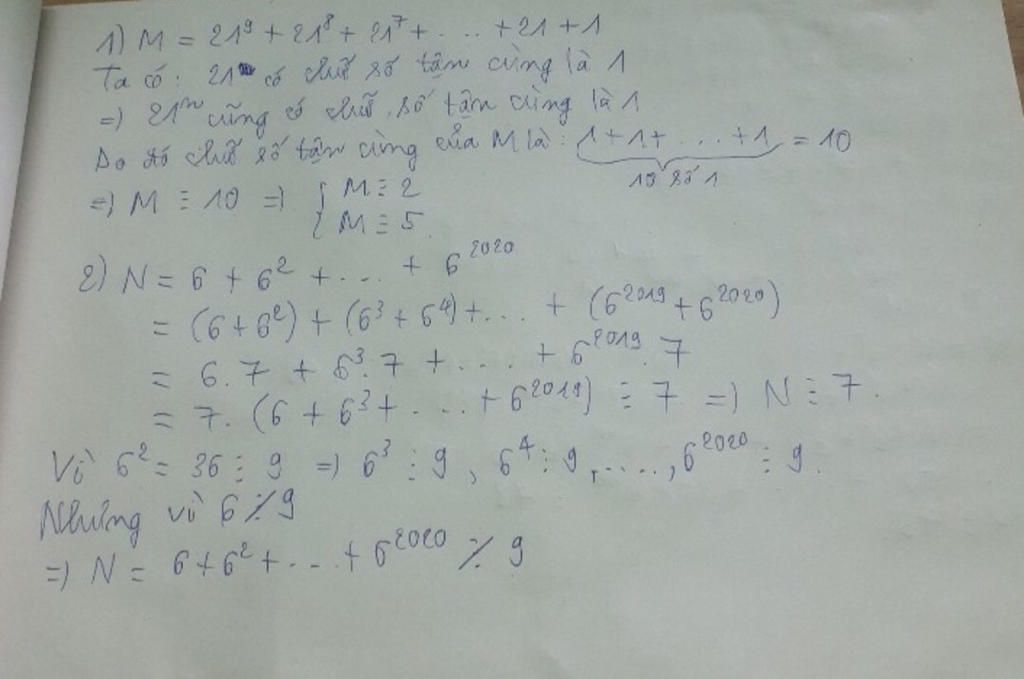 1) M = 21⁹ + 21⁸ + 21⁷ + . . . + 21 + 1
Ta có: 21 có chữ số tận cùng là 1
=) 21ⁿ cũng có chữ số tận cùng là 1
Do đó chữ số tận cùng của M là: 1 + 1 + . . . + 1 = 10
10 số 1
=) M ⋮ 10 =) { M ⋮ 2
M ⋮ 5.
2) N = 6 + 6² + . . . + 6²⁰²⁰
= (6 + 6²) + (6³ + 6⁴) + . . . + (6²⁰¹⁹ + 6²⁰²⁰)
= 6.7 + 6³.7 + . . . . + 6²⁰¹⁹.7
= 7. (6 + 6³ + . . . + 6²⁰¹⁹) ⋮ 7 =) N ⋮ 7.
Vì 6² = 36 ⋮ 9 =) 6³ ⋮ 9 , 6⁴ ⋮ 9, . . . . , 6²⁰²⁰ ⋮ 9.
Nhưng vì 6 ⋮̸ 9
=) N = 6 + 6² + . . . + 6²⁰²⁰ ⋮̸ 9